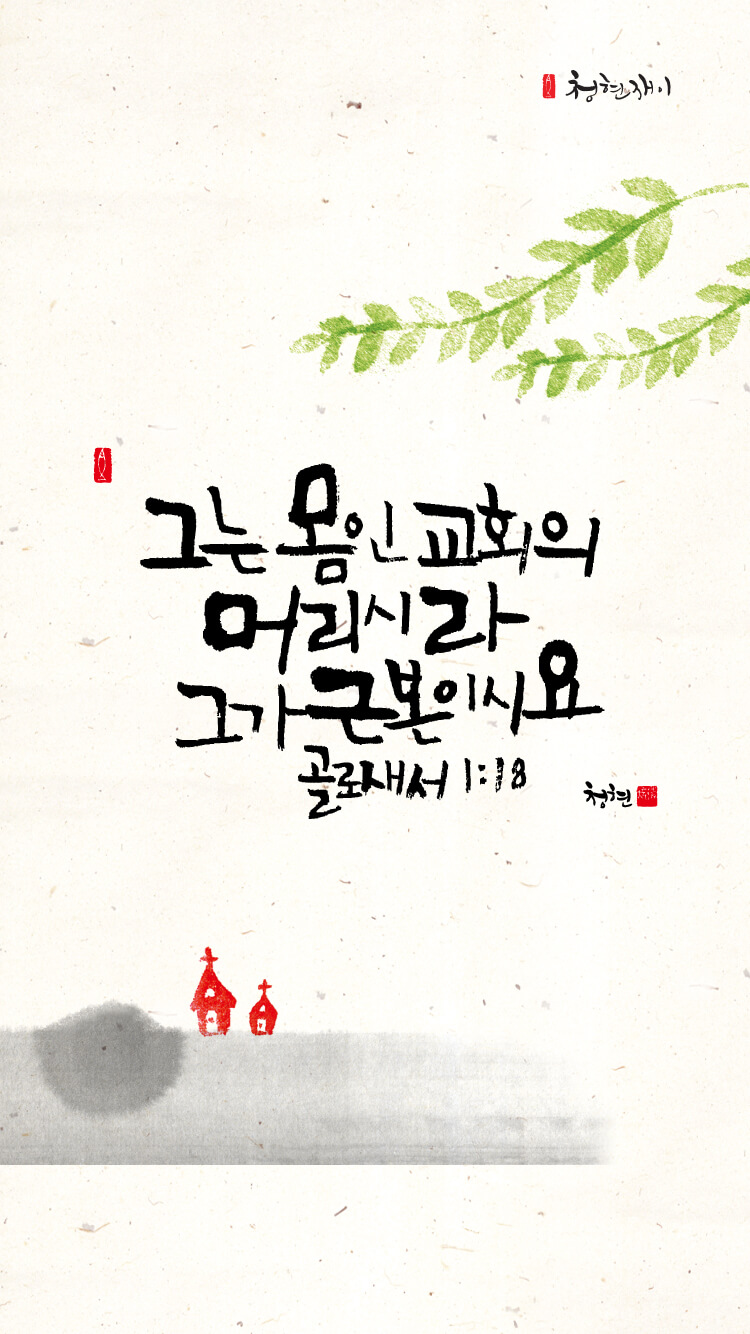 청현재이
그는 몸인 교회의
머리시라
그가 근본이시요
골로새서 1:18
청현